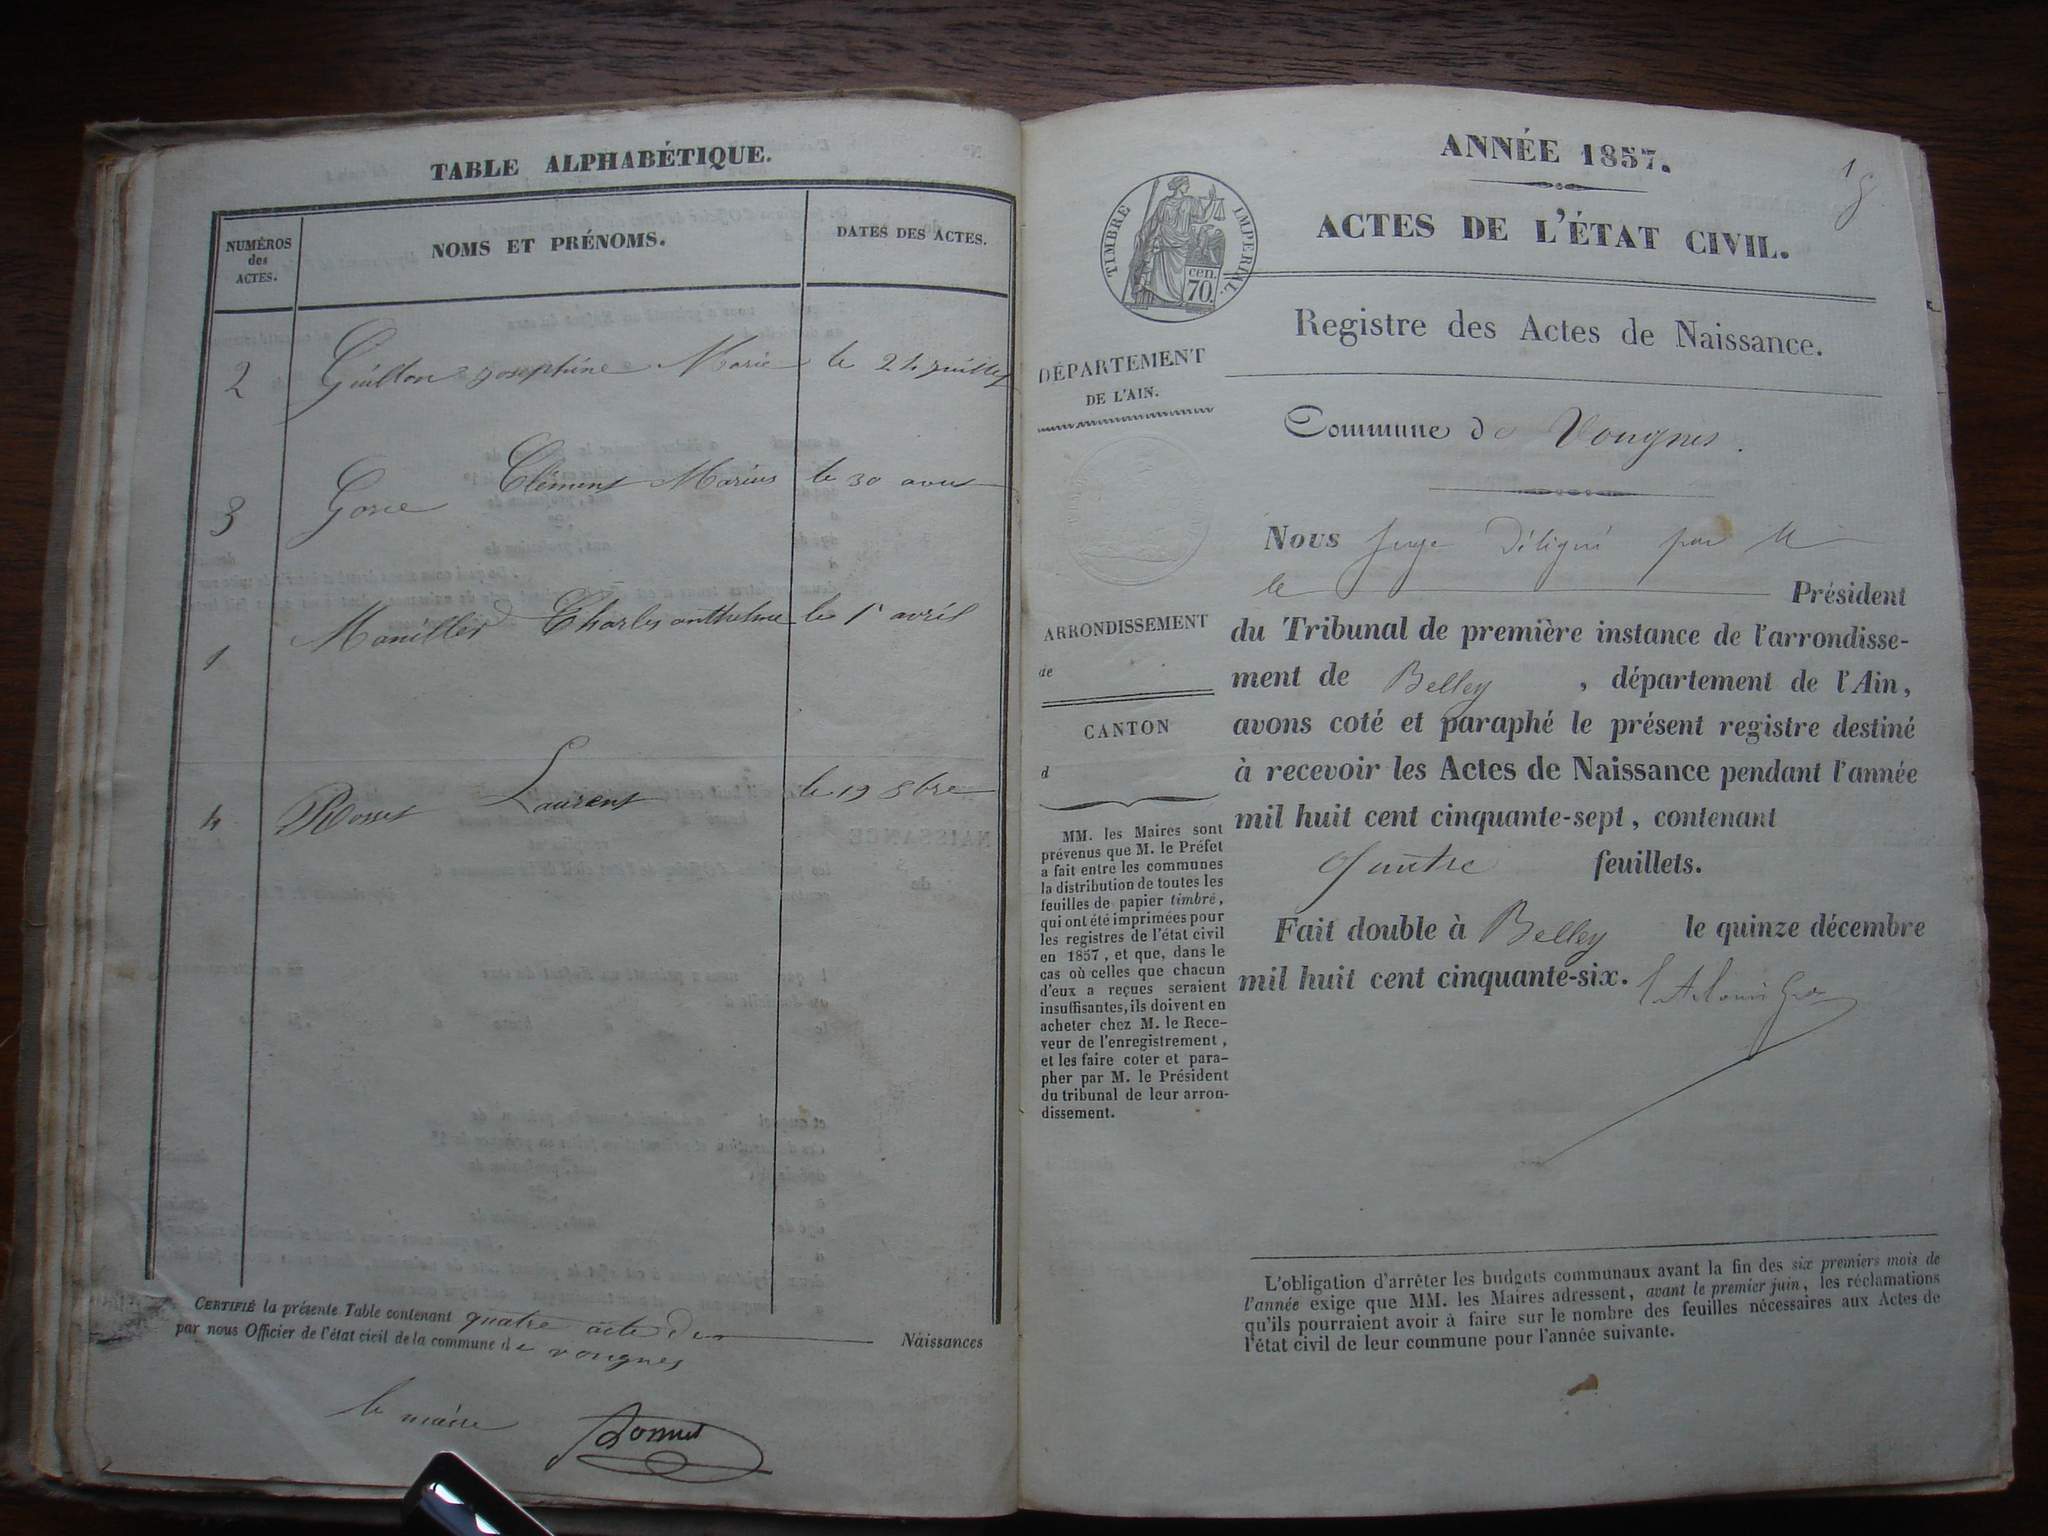 TABLE ALPHABÉTIQUE.
NUMÉROS des ACTES.
NOMS ET PRÉNOMS.
DATES DES ACTES.
2 Guillon josephine Marie le 24 juillet
3 Gosse Clément Marius le 30 aout
1 Charles anthelme le 1r avril
4 Rosset Laurent le 19 8bre
CERTIFIÉ la présente Table contenant quatre acte de Naissances
par nous Officier de l'état civil de la commune de vongnes
le maire
Bonnet
ANNÉE 1857.
1
ACTES DE L'ÉTAT CIVIL.
TIMBRE IMPERIAL.
cen.
70.
Registre des Actes de Naissance.
DÉPARTEMENT
DE L'AIN.
Commune de Vongnes.
Nous juge Délégué par M
le Président
du Tribunal de première instance de l'arrondisse-
ment de Belley, département de l'Ain,
avons coté et paraphé le présent registre destiné
à recevoir les Actes de Naissance pendant l'année
mil huit cent cinquante-sept, contenant
quatre feuillets.
Fait double à Belley le quinze décembre
mil huit cent cinquante-six.
ARRONDISSEMENT
de
CANTON
d
MM. les Maires sont
prévenus que M. le Préfet
a fait entre les communes
la distribution de toutes les
feuilles de papier timbré,
qui ont été imprimées pour
les registres de l'état civil
en 1857, et que, dans le
cas où celles que chacun
d'eux a reçues seraient
insuffisantes, ils doivent en
acheter chez M. le Rece-
veur de l'enregistrement,
et les faire coter et para-
pher par M. le Président
du tribunal de leur arron-
dissement.
L'obligation d'arrêter les budgets communaux avant la fin des six premiers mois de
l'année exige que MM. les Maires adressent, avant le premier juin, les réclamations
qu'ils pourraient avoir à faire sur le nombre des feuilles nécessaires aux Actes de
l'état civil de leur commune pour l'année suivante.